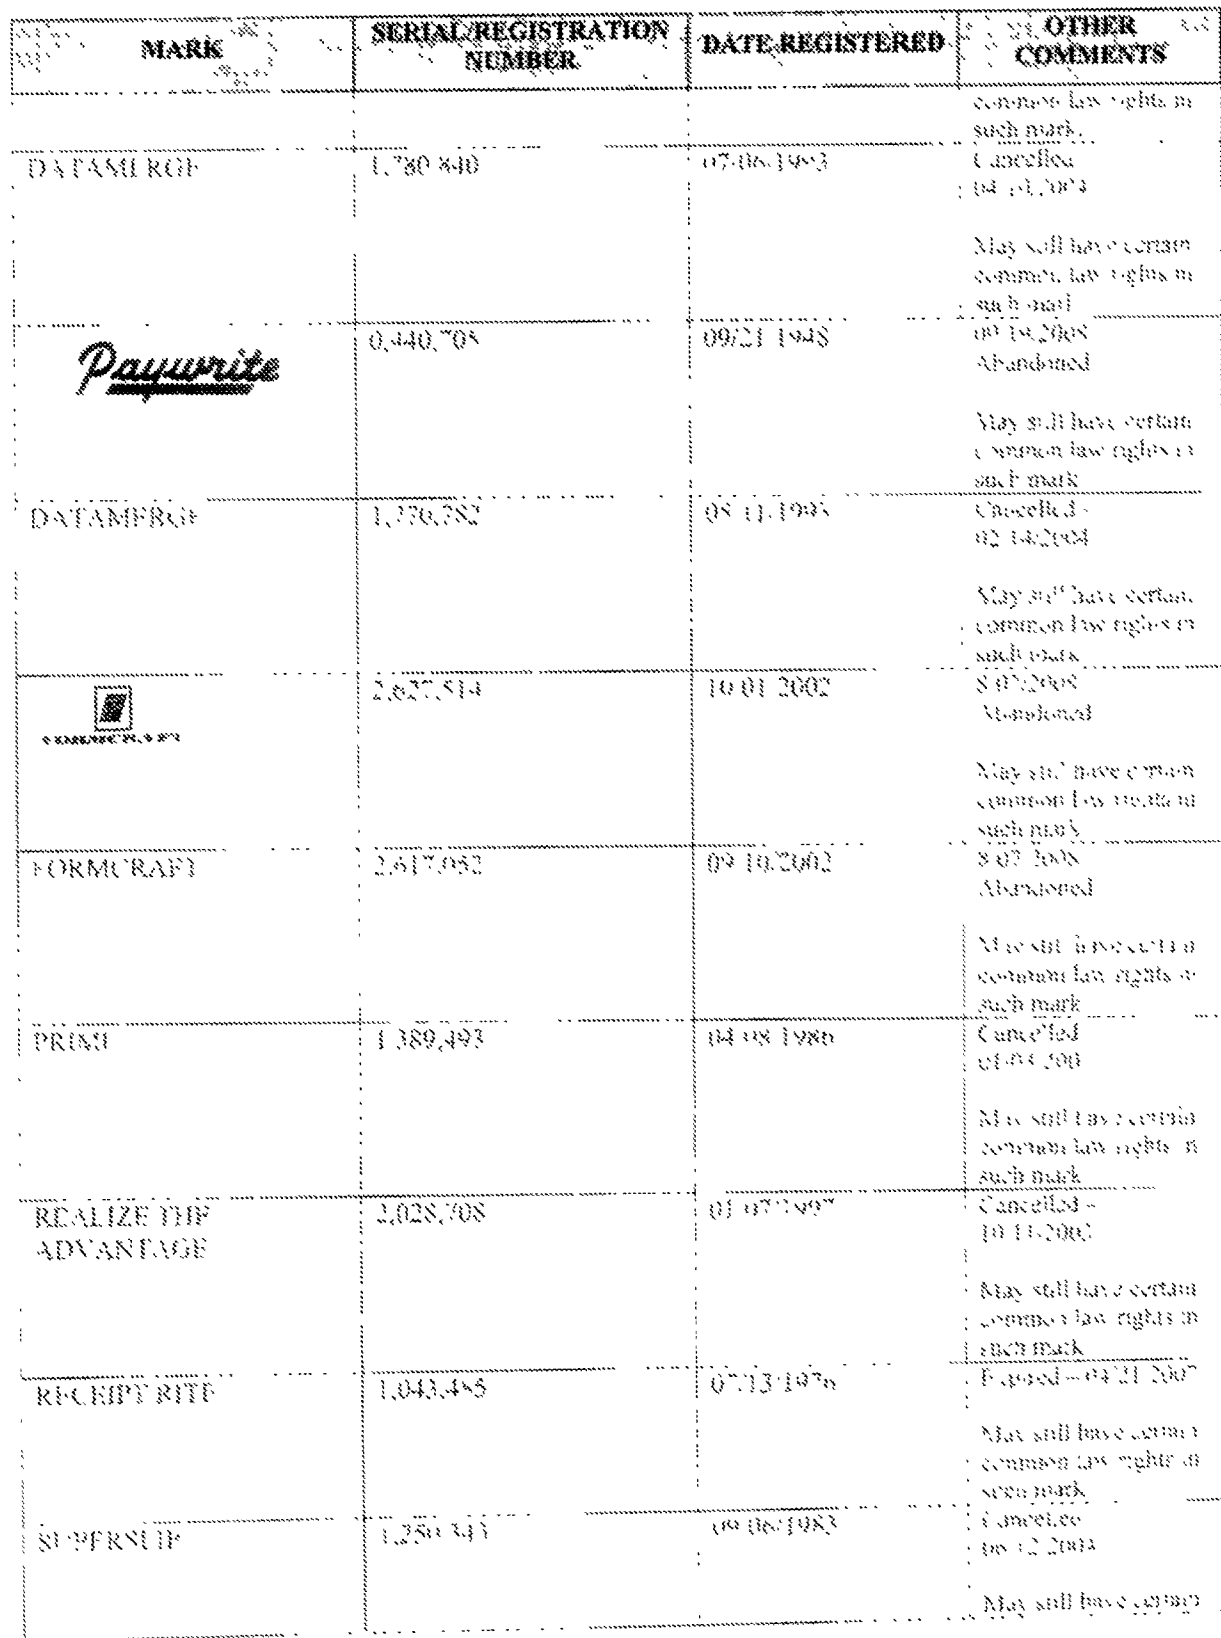 MARK
SERIAL/REGISTRATION
NUMBER
DATE REGISTERED
OTHER
COMMENTS
common law rights in
such mark.
DATAMERGE
1,780,840
Cancelled
May still have certain
common law rights in
such mark
Paywrite
0,440,705
09/21/1948
Abandoned
May still have certain
common law rights in
such mark
DATAMERGE
1,770,782
Cancelled -
02/14/2004
May still have certain
common law rights in
such mark
FORMCRAFT
2,627,514
10/01/2002
Abandoned
May still have certain
common law rights in
such mark
FORMCRAFT
2,617,052
09/10/2002
Abandoned
May still have certain
common law rights in
such mark
PRIME
1,389,493
04/08/1986
Cancelled
May still have certain
common law rights in
such mark
REALIZE THE
ADVANTAGE
2,028,708
01/07/1997
Cancelled –
May still have certain
common law rights in
such mark
RECEIPT RITE
1,043,485
07/13/1976
Expired –
May still have certain
common law rights in
such mark
SUPERSLIP
09/06/1983
Cancelled
May still have certain